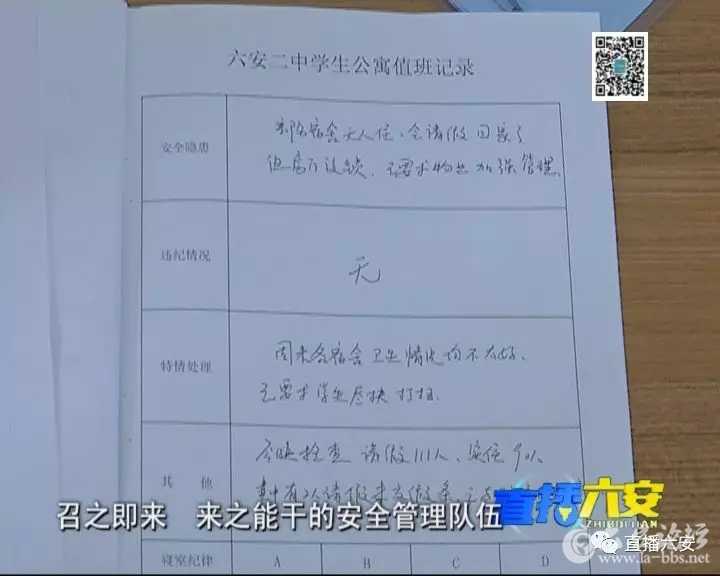 六安二中学生公寓值班记录
安全隐患
宿舍无人住、全请假回家了
但房门没锁、已要求物业加强管理
违纪情况
无
特情处理
周末各宿舍卫生情况均不太好、
已要求学生尽快打扫.
其 他
今晚检查 请假111人、实住90人
召之即来 来之能干的安全管理队伍
直播六安
ZHIBOLUAN
直播六安
www.la-bbs.net
寝室纪律 A B C D